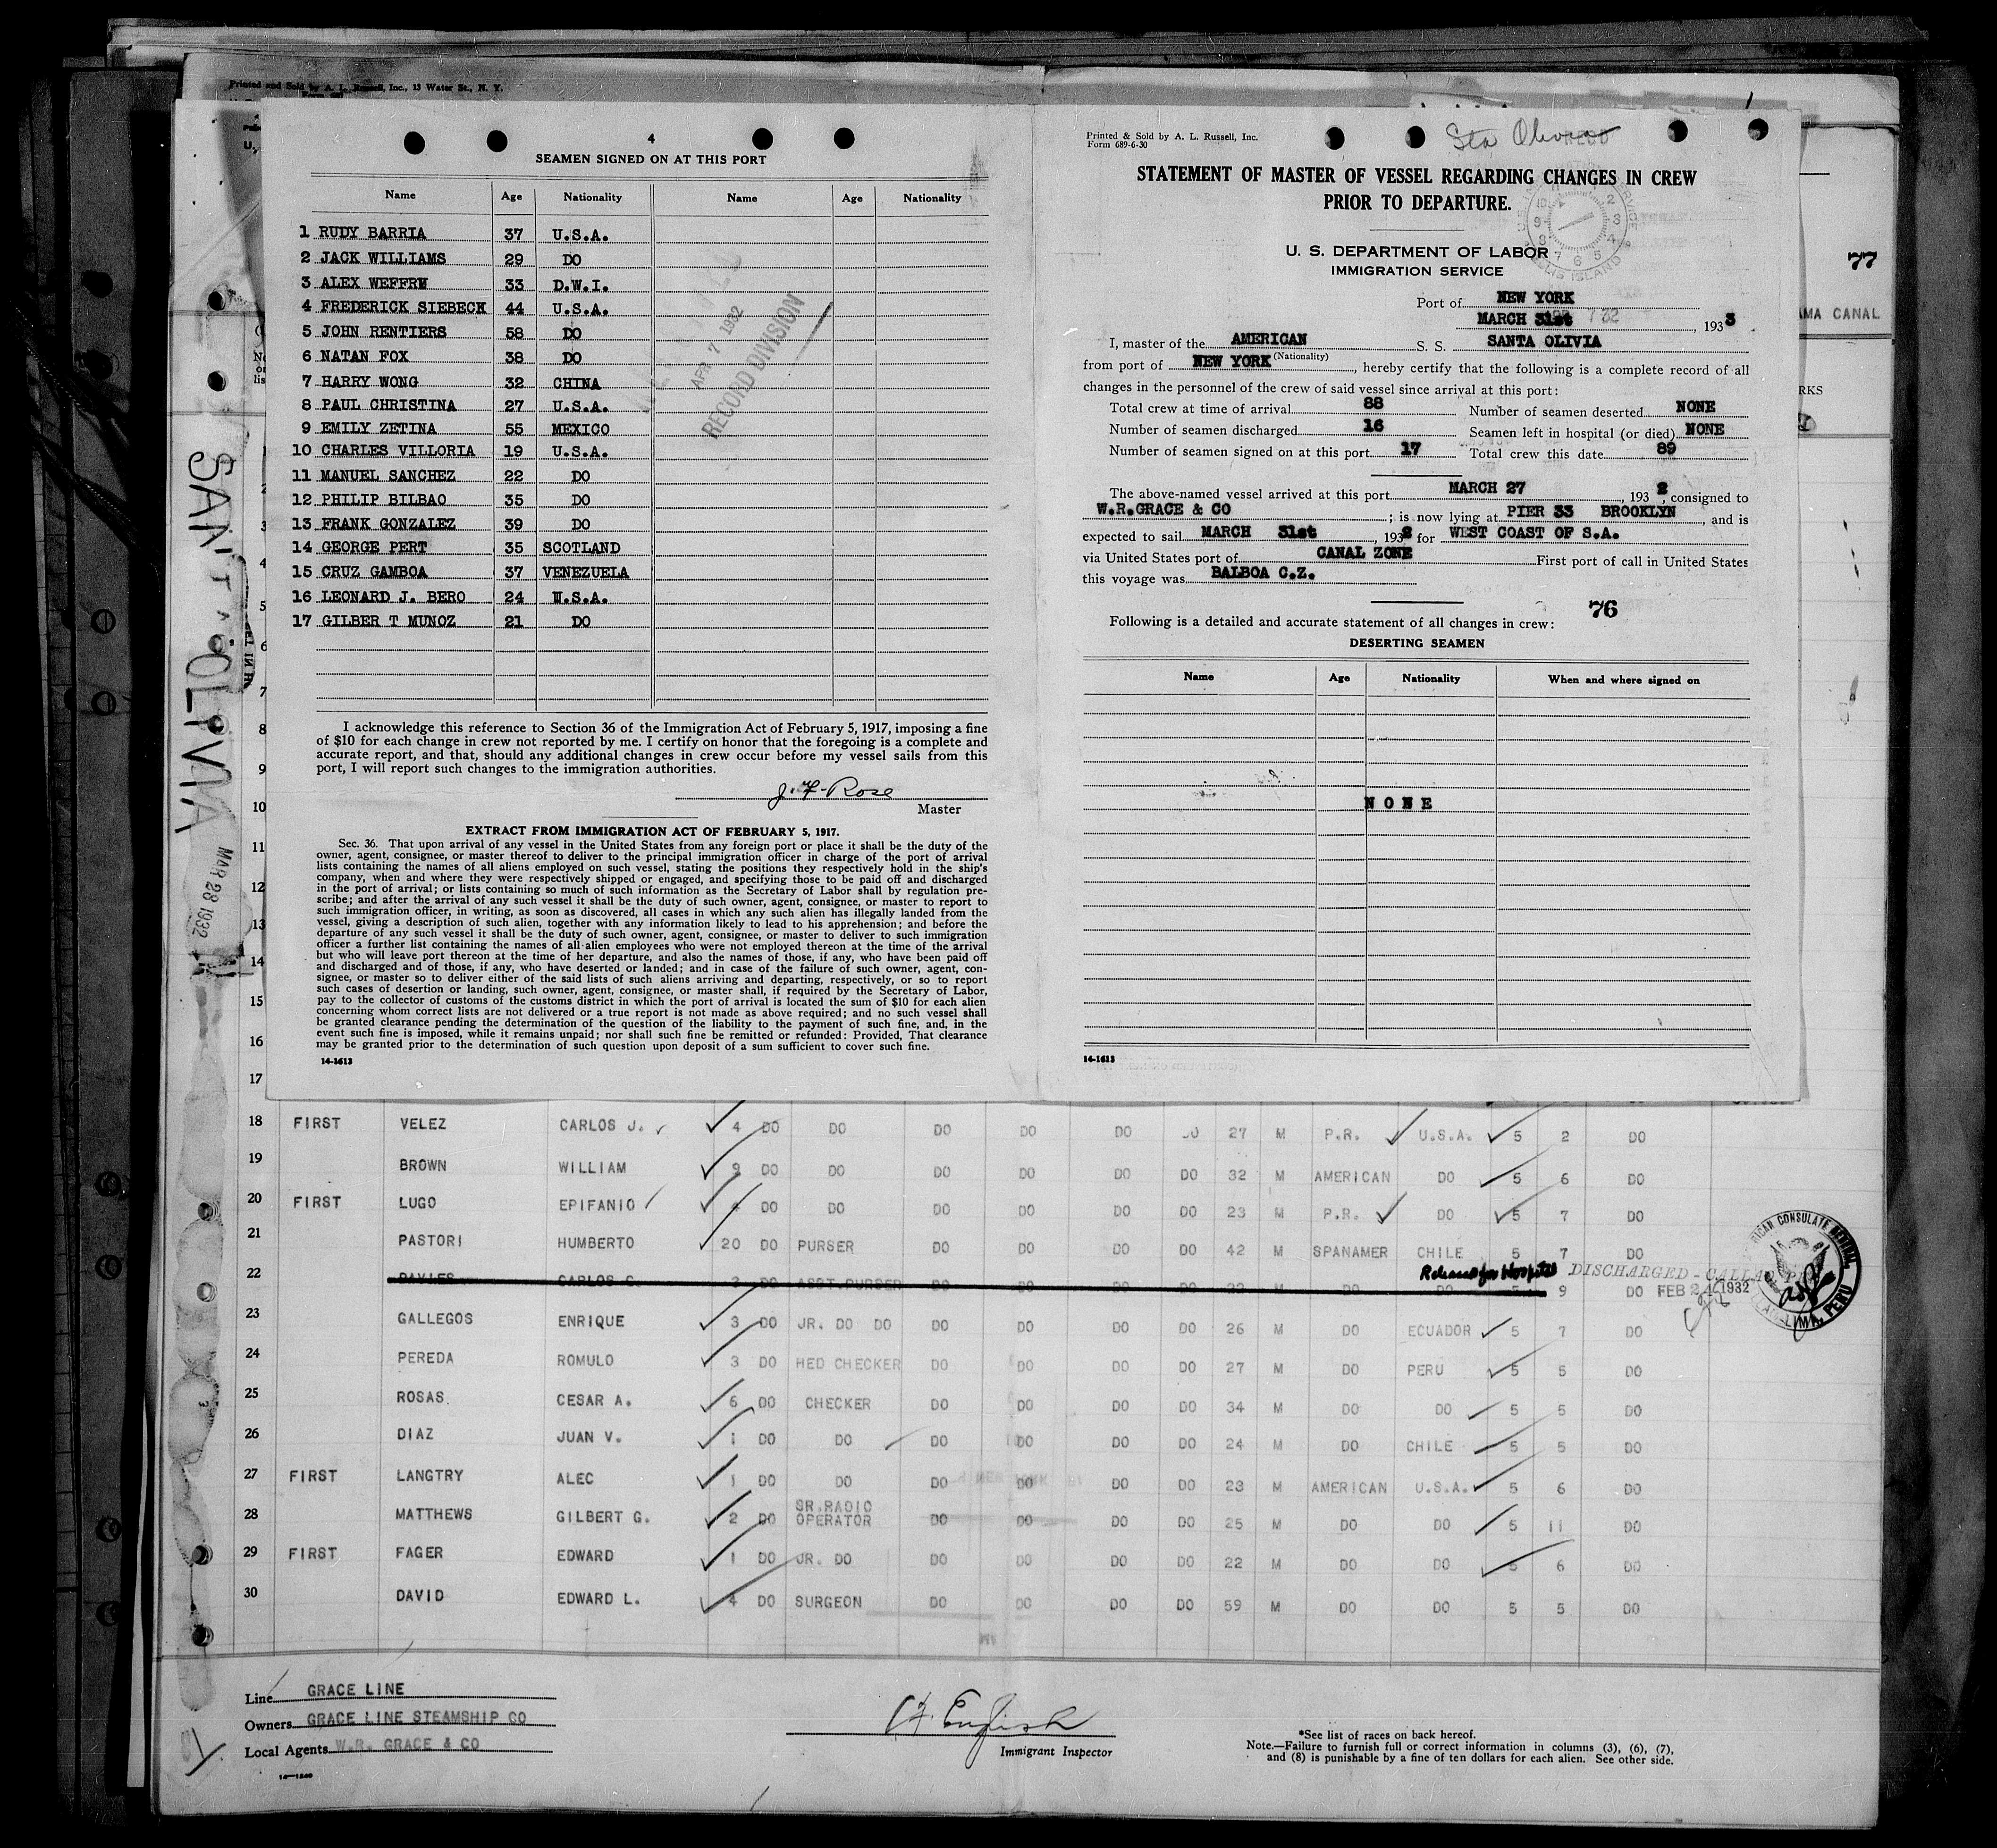 Printed and Sold by A. L. Russell, Inc., 13 Water St., N. Y.
4
SEAMEN SIGNED ON AT THIS PORT
Name Age Nationality Name Age Nationality
1 RUDY BARRIA 37 U.S.A.
2 JACK WILLIAMS 29 DO
3 ALEX WEFFRW 33 D.W.I.
4 FREDERICK SIEBECK 44 U.S.A.
5 JOHN RENTIERS 58 DO
6 NATAN FOX 38 DO
7 HARRY WONG 32 CHINA
8 PAUL CHRISTINA 27 U.S.A.
9 EMILY ZETINA 55 MEXICO
10 CHARLES VILLORIA 19 U.S.A.
11 MANUEL SANCHEZ 22 DO
12 PHILIP BILBAO 35 DO
13 FRANK GONZALEZ 39 DO
14 GEORGE PERT 35 SCOTLAND
15 CRUZ GAMBOA 37 VENEZUELA
16 LEONARD J. BERO 24 U.S.A.
17 GILBER T MUNOZ 21 DO
APR 7 1932
RECORD DIVISION
I acknowledge this reference to Section 36 of the Immigration Act of February 5, 1917, imposing a fine
of $10 for each change in crew not reported by me. I certify on honor that the foregoing is a complete and
accurate report, and that, should any additional changes in crew occur before my vessel sails from this
port, I will report such changes to the immigration authorities.
J. F. Rose
Master
EXTRACT FROM IMMIGRATION ACT OF FEBRUARY 5, 1917.
Sec. 36. That upon arrival of any vessel in the United States from any foreign port or place it shall be the duty of the
owner, agent, consignee, or master thereof to deliver to the principal immigration officer in charge of the port of arrival
lists containing the names of all aliens employed on such vessel, stating the positions they respectively hold in the ship's
company, when and where they were respectively shipped or engaged, and specifying those to be paid off and discharged
in the port of arrival; or lists containing so much of such information as the Secretary of Labor shall by regulation pre-
scribe; and after the arrival of any such vessel it shall be the duty of such owner, agent, consignee, or master to report to
such immigration officer, in writing, as soon as discovered, all cases in which any such alien has illegally landed from the
vessel, giving a description of such alien, together with any information likely to lead to his apprehension; and before the
departure of any such vessel it shall be the duty of such owner, agent, consignee, or master to deliver to such immigration
officer a further list containing the names of all alien employees who were not employed thereon at the time of the arrival
but who will leave port thereon at the time of her departure, and also the names of those, if any, who have been paid off
and discharged and of those, if any, who have deserted or landed; and in case of the failure of such owner, agent, con-
signee, or master so to deliver either of the said lists of such aliens arriving and departing, respectively, or so to report
such cases of desertion or landing, such owner, agent, consignee, or master shall, if required by the Secretary of Labor,
pay to the collector of customs of the customs district in which the port of arrival is located the sum of $10 for each alien
concerning whom correct lists are not delivered or a true report is not made as above required; and no such vessel shall
be granted clearance pending the determination of the question of the liability to the payment of such fine, and, in the
event such fine is imposed, while it remains unpaid; nor shall such fine be remitted or refunded: Provided, That clearance
may be granted prior to the determination of such question upon deposit of a sum sufficient to cover such fine.
14-1613
Printed & Sold by A. L. Russell, Inc.
Form 689-6-30
Sta Olivia
STATEMENT OF MASTER OF VESSEL REGARDING CHANGES IN CREW
PRIOR TO DEPARTURE.
U. S. DEPARTMENT OF LABOR
IMMIGRATION SERVICE
ELLIS ISLAND
Port of NEW YORK
MARCH 31st, 1933
I, master of the AMERICAN S. S. SANTA OLIVIA
(Nationality)
from port of NEW YORK, hereby certify that the following is a complete record of all
changes in the personnel of the crew of said vessel since arrival at this port:
Total crew at time of arrival 88 Number of seamen deserted NONE
Number of seamen discharged 16 Seamen left in hospital (or died) NONE
Number of seamen signed on at this port 17 Total crew this date 89
The above-named vessel arrived at this port MARCH 27, 1932, consigned to
W.R.GRACE & CO; is now lying at PIER 33 BROOKLYN, and is
expected to sail MARCH 31st, 1932 for WEST COAST OF S.A.
via United States port of CANAL ZONE First port of call in United States
this voyage was BALBOA C.Z.
76
Following is a detailed and accurate statement of all changes in crew:
DESERTING SEAMEN
Name Age Nationality When and where signed on
NONE
14-1613
77
AMA CANAL
RKS
SANTA OLIVIA
MAR 28 1932
6
7
8
9
10
11
12
13
14
15
16
17
18 FIRST VELEZ CARLOS J. 4 DO DO DO DO DO DO 27 M P.R. U.S.A. 5 2 DO
19 BROWN WILLIAM 9 DO DO DO DO DO DO 32 M AMERICAN DO 5 6 DO
20 FIRST LUGO EPIFANIO 4 DO DO DO DO DO DO 23 M P.R. DO 5 7 DO
21 PASTORI HUMBERTO 20 DO PURSER DO DO DO DO 42 M SPANAMER CHILE 5 7 DO
22 DAVIES CARLOS C. 3 DO ASST.PURSER DO DO DO DO 22 M DO DO 5 9 DO
Released for Hospital DISCHARGED - CALLAO
FEB 24 1932
AMERICAN CONSULATE GENERAL
CALLAO-LIMA, PERU
23 GALLEGOS ENRIQUE 3 DO JR. DO DO DO DO DO DO 26 M DO ECUADOR 5 7 DO
24 PEREDA ROMULO 3 DO HED CHECKER DO DO DO DO 27 M DO PERU 5 5 DO
25 ROSAS CESAR A. 6 DO CHECKER DO DO DO DO 34 M DO DO 5 5 DO
26 DIAZ JUAN V. 1 DO DO DO DO DO DO 24 M DO CHILE 5 5 DO
27 FIRST LANGTRY ALEC 1 DO DO DO DO DO DO 23 M AMERICAN U.S.A. 5 6 DO
28 MATTHEWS GILBERT G. 2 DO SR.RADIO OPERATOR DO DO DO DO 25 M DO DO 5 11 DO
29 FIRST FAGER EDWARD 1 DO JR. DO DO DO DO DO 22 M DO DO 5 6 DO
30 DAVID EDWARD L. 4 DO SURGEON DO DO DO DO 59 M DO DO 5 5 DO
Line GRACE LINE
Owners GRACE LINE STEAMSHIP CO
Local Agents W.R. GRACE & CO
14-1240
English
Immigrant Inspector
*See list of races on back hereof.
Note.—Failure to furnish full or correct information in columns (3), (6), (7),
and (8) is punishable by a fine of ten dollars for each alien. See other side.